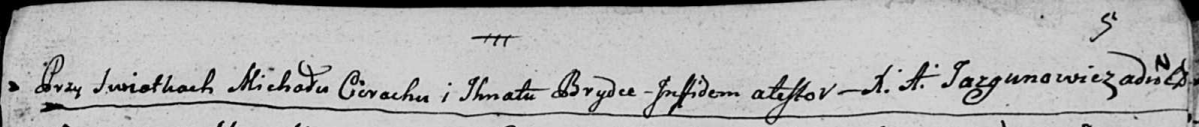 5
Przy Swiatkach Michału Cierachu i Ihnatu Brydce - In fidem atestor - X. A. Jazgunowicz